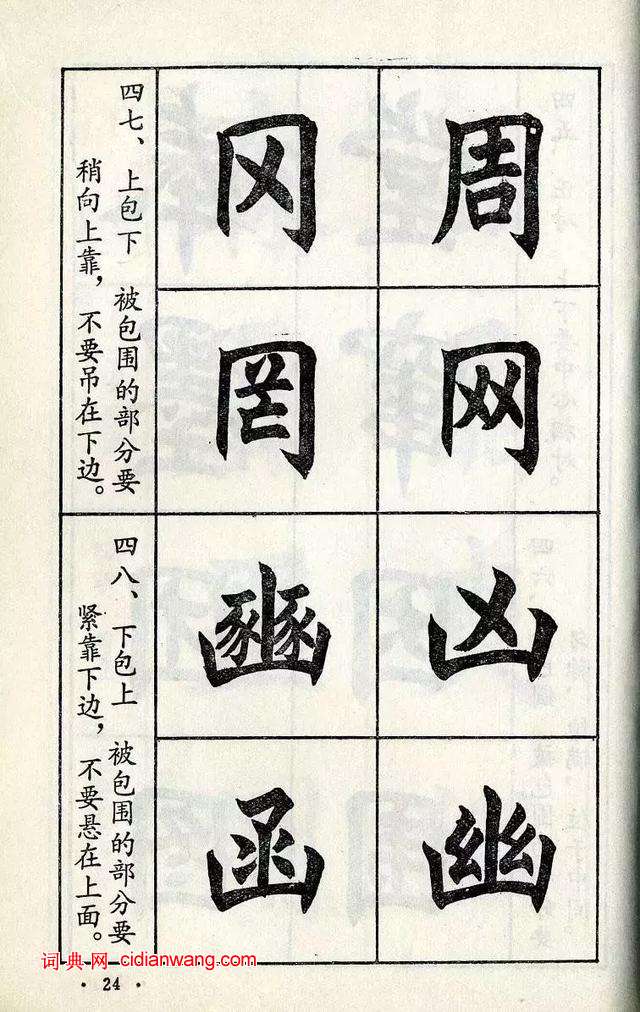 四七、上包下 被包围的部分要
稍向上靠，不要吊在下边。
周
网
冈
罔
四八、下包上 被包围的部分要
紧靠下边，不要悬在上面。
凶
幽
豳
函
词典网 cidianwang.com
· 24 ·